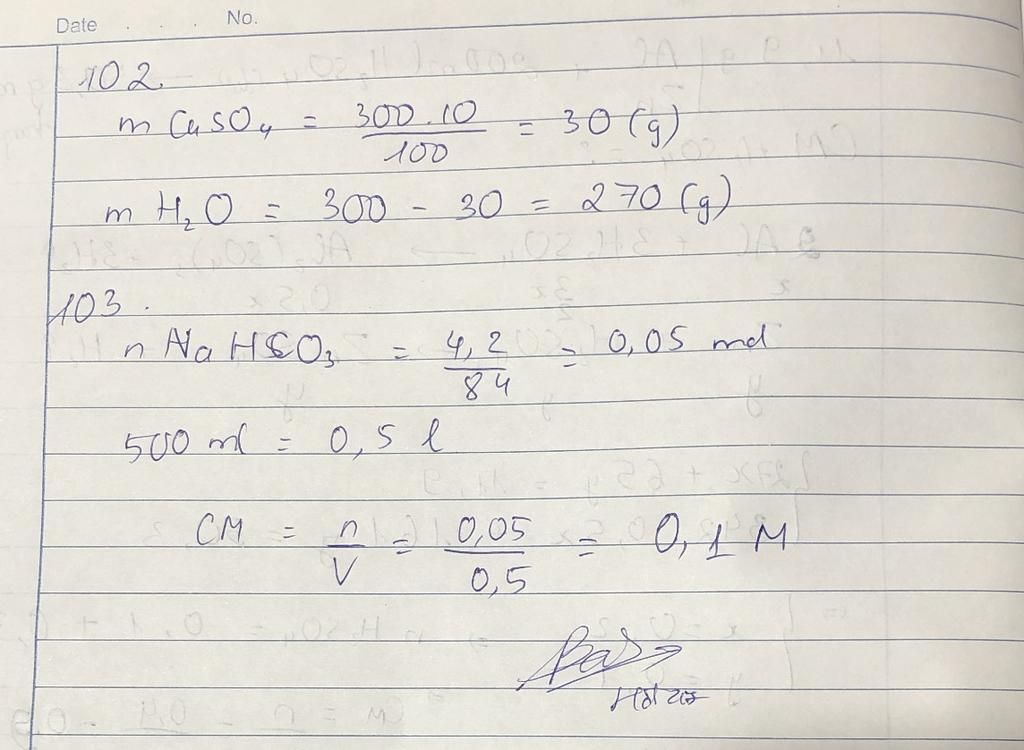 Date . . . No.
102.
m CuSO₄ = 300.10/100 = 30 (g)
m H₂O = 300 - 30 = 270 (g)
103.
n NaHCO₃ = 4,2/84 = 0,05 mol
500 ml = 0,5 l
CM = n/V = 0,05/0,5 = 0,1 M